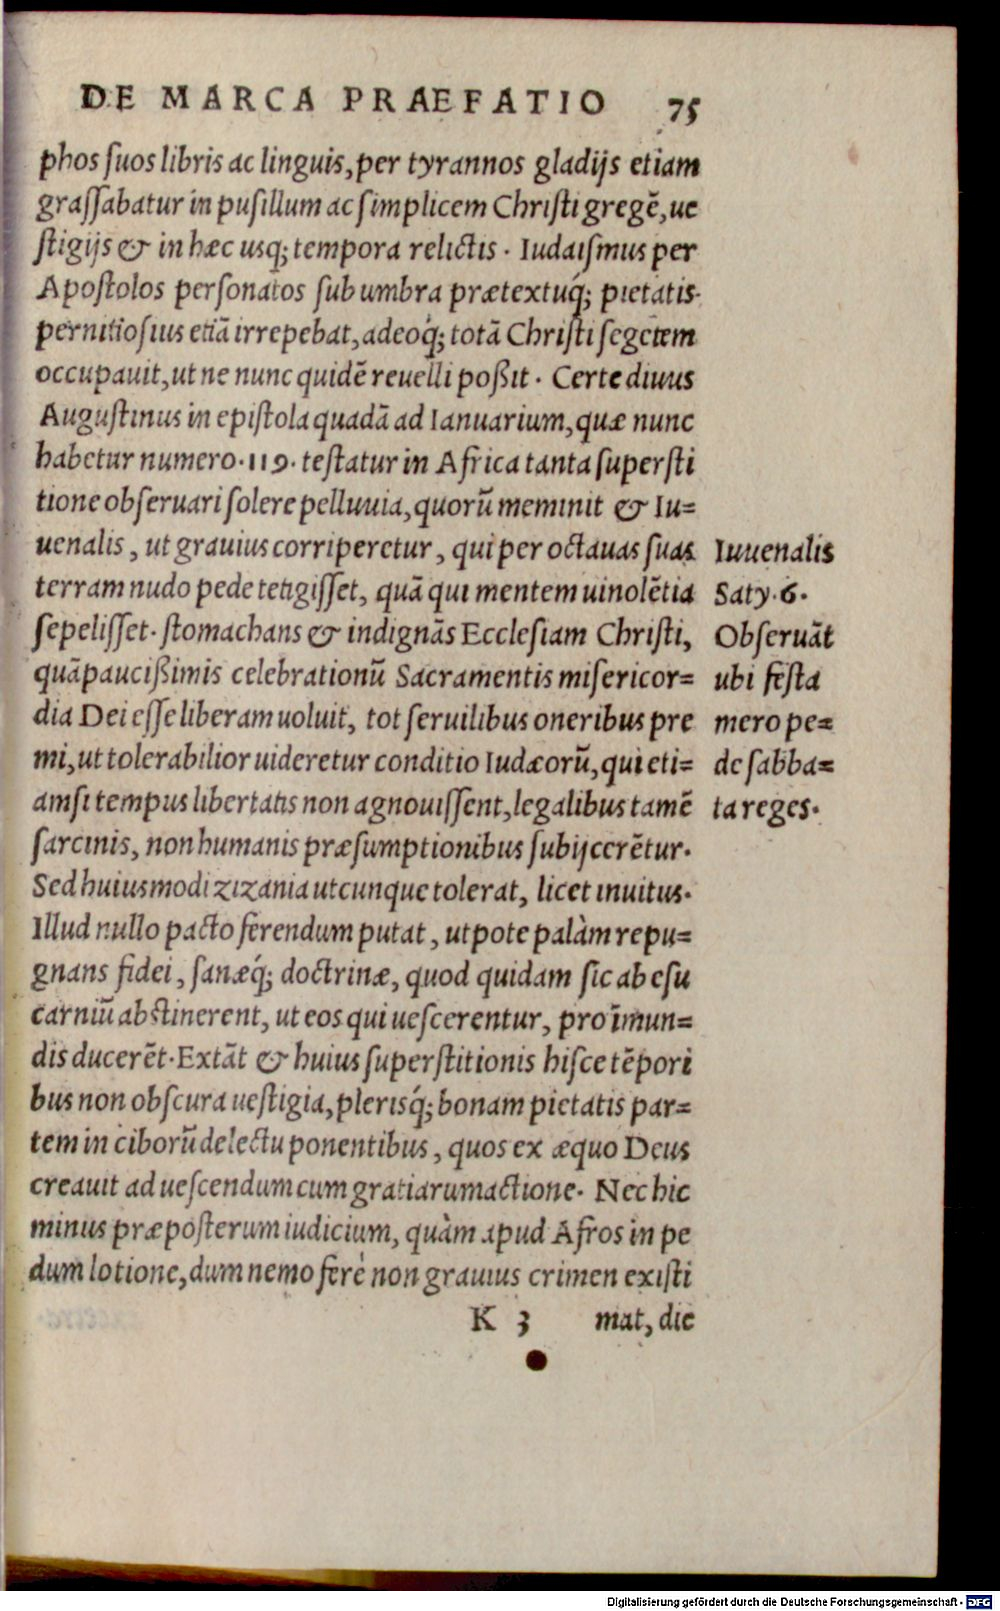 DE MARCA PRAEFATIO 75
phos suos libris ac linguis, per tyrannos gladijs etiam
grassabatur in pusillum ac simplicem Christi gregē, ue
stigijs & in hæc usq; tempora relictis. Iudaismus per
Apostolos personatos sub umbra prætextuq́; pietatis
pernitiosius etiā irrepebat, adeoq́; totā Christi segetem
occupauit, ut ne nunc quidē reuelli poßit. Certe diuus
Augustinus in epistola quadā ad Ianuarium, quæ nunc
habetur numero. 119. testatur in Africa tanta supersti
tione obseruari solere pelluuia, quorū meminit & Iu=
uenalis, ut grauius corriperetur, qui per octauas suas
terram nudo pede tetigisset, quā qui mentem uinolētia
sepelisset. stomachans & indignās Ecclesiam Christi,
quā paucißimis celebrationū Sacramentis misericor=
dia Dei esse liberam uoluit, tot seruilibus oneribus pre
mi, ut tolerabilior uideretur conditio Iudæorū, qui eti=
amsi tempus libertatis non agnouissent, legalibus tamē
sarcinis, non humanis præsumptionibus subijcerētur.
Sed huiusmodi zizania utcunque tolerat, licet inuitus.
Illud nullo pacto ferendum putat, utpote palàm repu=
gnans fidei, sanæq́; doctrinæ, quod quidam sic ab esu
carniū abstinerent, ut eos qui uescerentur, pro īmun=
dis ducerēt. Extāt & huius superstitionis hisce tēpori
bus non obscura uestigia, plerisq́; bonam pietatis par=
tem in ciborū delectu ponentibus, quos ex æquo Deus
creauit ad uescendum cum gratiarum actione. Nec hic
minus præposterum iudicium, quàm apud Afros in pe
dum lotione, dum nemo ferè non grauius crimen existi
K 3 mat, dic
Iuuenalis
Saty. 6.
Obseruāt
ubi festa
mero pe=
de sabba=
ta reges.
Digitalisierung gefördert durch die Deutsche Forschungsgemeinschaft - DFG